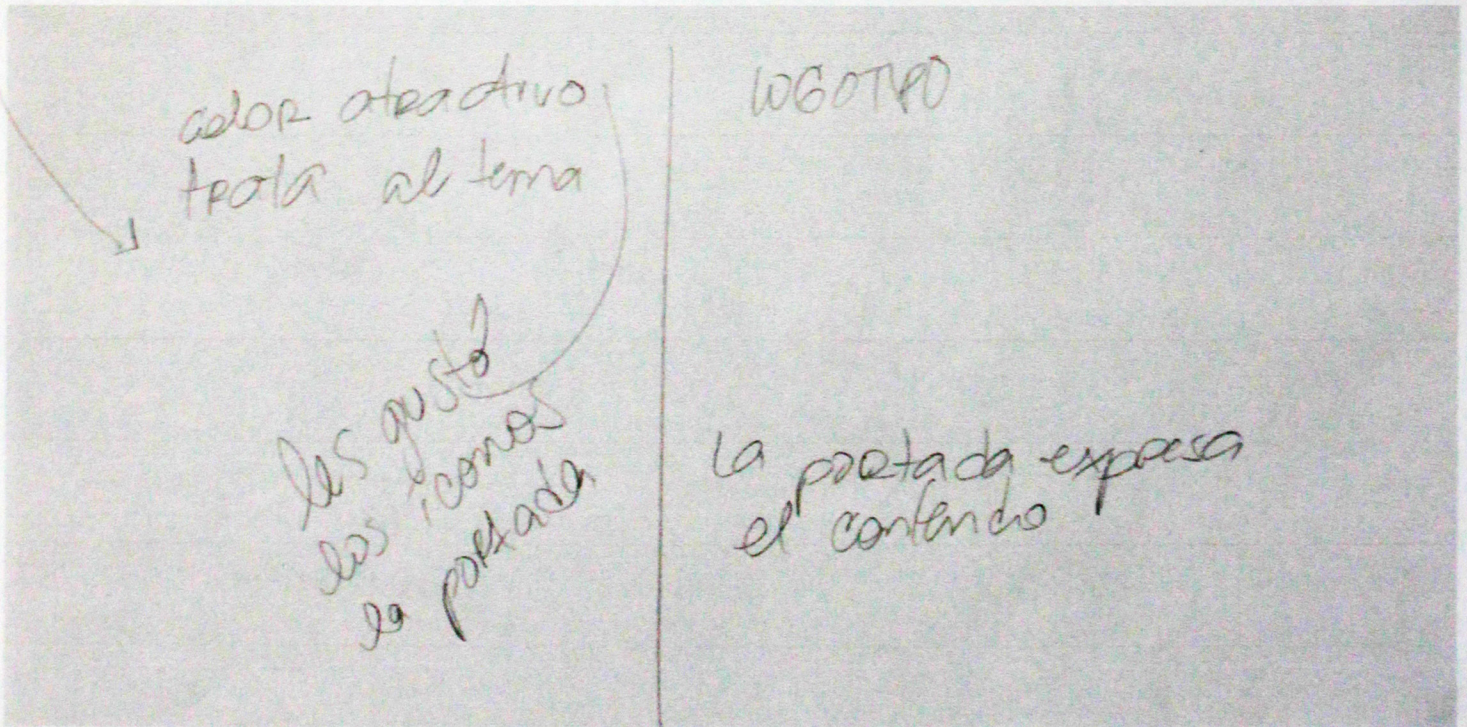 color atractivo
trata al tema
les gustó
los iconos
la portada
LOGOTIPO
la portada expresa
el contenido